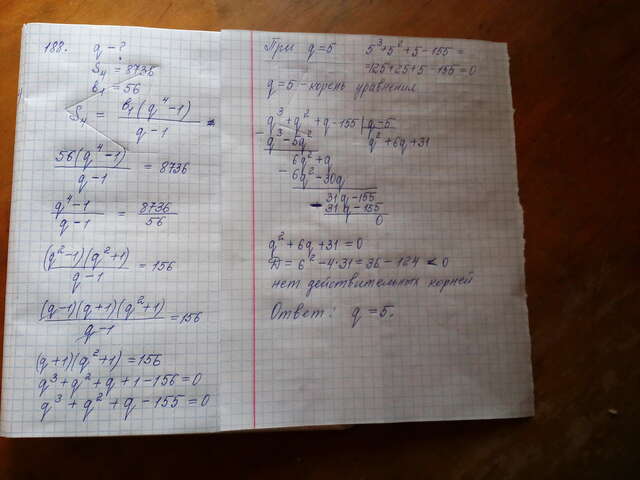 188. q - ?
S₄ = 8736
b₁ = 56
S₄ = b₁(q⁴-1) / q-1
56(q⁴-1) / q-1 = 8736
q⁴-1 / q-1 = 8736 / 56
(q²-1)(q²+1) / q-1 = 156
(q-1)(q+1)(q²+1) / q-1 = 156
(q+1)(q²+1) = 156
q³+q²+q+1-156=0
q³+q²+q-155=0
При q=5 5³+5²+5-155=
=125+25+5-155=0
q=5 - корень уравнения
q³+q²+q-155 | q-5
- q³-5q² q²+6q+31
6q²+q
- 6q²-30q
31q-155
- 31q-155
0
q²+6q+31=0
D=6²-4·31=36-124<0
нет действительных корней
Ответ: q=5.